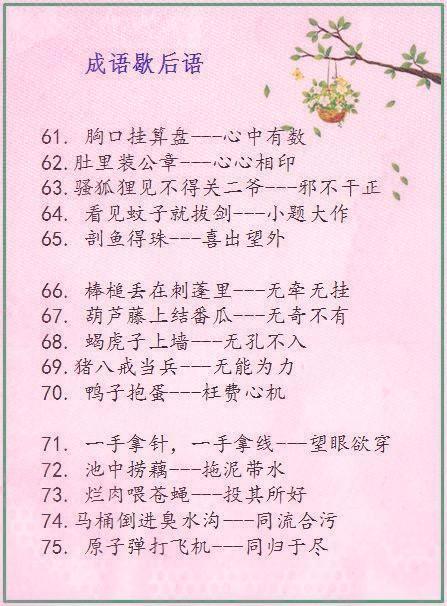 成语歇后语
61. 胸口挂算盘---心中有数
62.肚里装公章---心心相印
63.骚狐狸见不得关二爷---邪不干正
64. 看见蚊子就拔剑---小题大作
65. 剖鱼得珠---喜出望外
66. 棒槌丢在刺蓬里---无牵无挂
67. 葫芦藤上结番瓜---无奇不有
68. 蝎虎子上墙---无孔不入
69.猪八戒当兵---无能为力
70. 鸭子抱蛋---枉费心机
71. 一手拿针，一手拿线---望眼欲穿
72. 池中捞藕---拖泥带水
73. 烂肉喂苍蝇---投其所好
74.马桶倒进臭水沟---同流合污
75. 原子弹打飞机---同归于尽